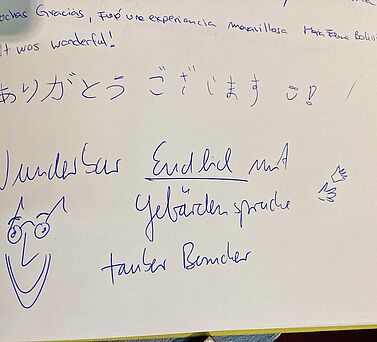 Gracias, Fué una experiencia maravillosa
It was wonderful!
ありがとうございます
wunderbar Endlich mit
Gebärdensprache
tauber Besucher